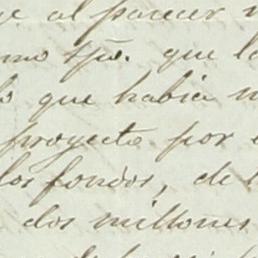 al parecer
tpo. que la
que habia
proyecto por
los fondos, de
dos millones